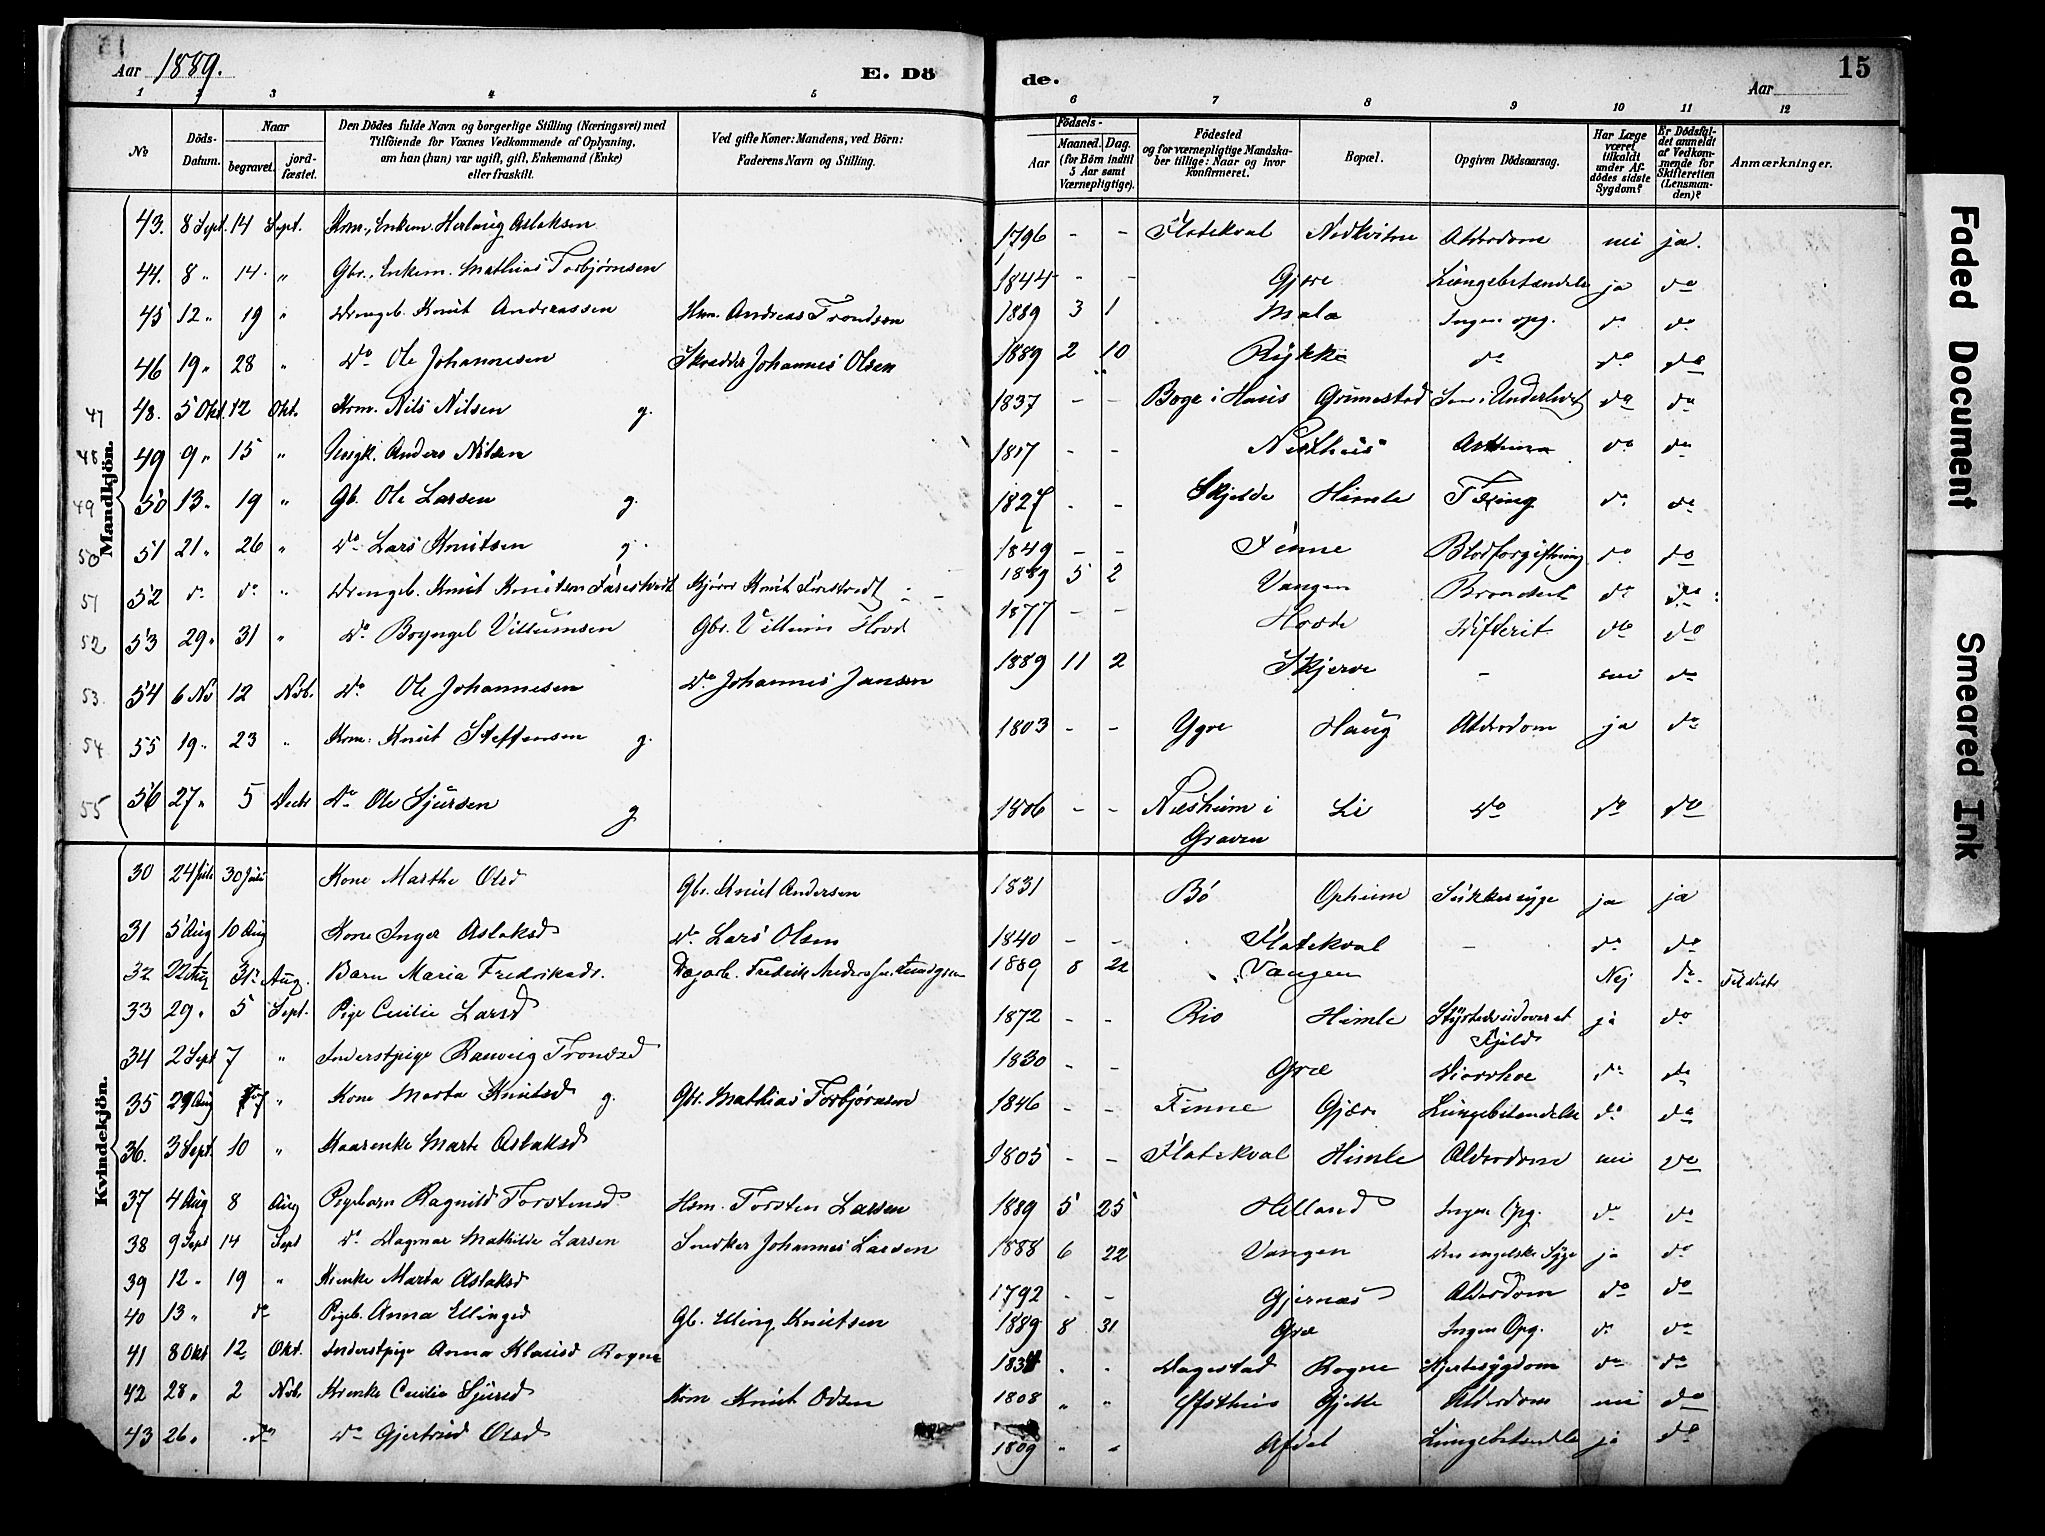 Aar 1889. E. Dö de. Aar 15
1 2 3 4 5 6 7 8 9 10 11 12
No
Döds-Datum.
Naar
begravet.
jordfæstet.
Den Dödes fulde Navn og borgerlige Stilling (Næringsvei) med
Tilföiende for Voxnes Vedkommende af Oplysning,
om han (hun) var ugift, gift, Enkemand (Enke)
eller fraskilt.
Ved gifte Koner: Mandens, ved Börn:
Faderens Navn og Stilling.
Födsels-
Aar
Maaned. Dag.
(for Börn indtil
5 Aar samt
Værnepligtige).
Födested
og for værnepligtige Mandskaber tillige: Naar og hvor
konfirmeret.
Bopæl.
Opgiven Dödsaarsag.
Har Læge
været
tilkaldt
under Afdödes sidste
Sygdom?
Er Dödsfaldet anmeldt
af Vedkommende for
Skifteretten
(Lensmanden)?
Anmærkninger.
Mandkjön.
43. 8 Sept. 14 Sept. Aslaksen 1796 - - Flatekval Nedkvitne Alderdom nei ja.
44. 8 " 14 " Gbr., Enkem. Mathias Torbjørnsen 1844 - - Gjøre Lungebetændelse ja do
45 12 " 19 " Drengeb. Knut Andreassen Hsm. Andreas Trondsen 1889 3 1 Mala Ingen opg. do do
46 19 " 28 " do Ole Johannesen Skredder Johannes Olsen 1889 2 10 Rykke do do do
47 48. 5 Okt. 12 Okt. Nils Nilsen g. 1837 - - Grimestad do do
48 49 9 " 15 " Ungk. Anders Nilsen 1817 - - Nesthus Asthma do do
49 50 13 " 19 " Gb. Ole Larsen g. 1827 - - Skjelde Himle Tæring do do
50 51 21 " 26 " do Lars Knutsen g. 1849 - - Finne Blodforgiftning do do
51 52 do do " Drengeb. Knut Knutsen Knut 1889 5 2 Vangen do do
52 53 29 " 31 " do Villumsen Gbr. Villum 1877 - - Difterit do do
53 54 6 No 12 Nob. do Ole Johannesen do Johannes Jansen 1889 11 2 Skjerve - nei do
54 55 19 " 23 " Knut Steffensen g. 1803 - - Ygre Haug Alderdom ja do
55 56 27 " 5 Decbr do Ole Sjursen g 1806 - - Næsheim i Li do do do
Graven
Kvindekjön.
30 24 Juli 30 Juli Kone Marthe Olsd Gbr. Knut Andersen 1831 Bö Opheim Sukkersyge ja ja
31 5 Aug 10 Aug Kone Inger Aslaksd do Lars Olsen 1840 - - Flatekval - do do
32 22 Aug 31 Aug. Barn Maria Fredriksd. Dagarb. Fredrik 1889 8 22 Vangen Nej do
33 29 " 5 Sept. Pige Cecilie Larsd 1872 - - Himle ja do
Fjeld
34 2 Sept 7 " Inderstpige Ranveig Trondsd 1830 - - Græ Diarrhoe do do
35 29 Aug " Kone Marta Knutsd g. Gbr. Mathias Torbjørnsen 1846 - - Finne Gjøre Lungebetændelse do do
36. 3 Sept. 10 " Kaarenke Marte Aslaksd 1805 - - Flatekval Himle Alderdom nei do
37 4 Aug 8 Aug Pigebarn Ragnild Torstensd Hsm. Torsten Larsen 1889 5 25 Helland Ingen Opg. do do
38 9 Sept 14 Sept do Dagmar Mathilde Larsen Snedker Johannes Larsen 1888 6 22 Vangen Den engelske Syge ja do
39 12 " 19 " Marta Aslaksd 1792 - - Gjernæs Alderdom do do
40 13 " do Pigeb. Anna Ellingsd Gb. Elling Knutsen 1889 8 31 Græ Ingen Opg. do do
41 8 Okt 12 Okt. Inderstpige Anna Klausd Rogne - - Dagestad Rogne Hjertesygdom do do
42 28 " 2 Nob. Cecilie Sjursd Knut Odsen 1808 " " Alderdom nei do
43 26 " do do Gjertrud Olsd 1809 " " Afdal Lungebetændelse ja do
Faded Document
Smeared Ink